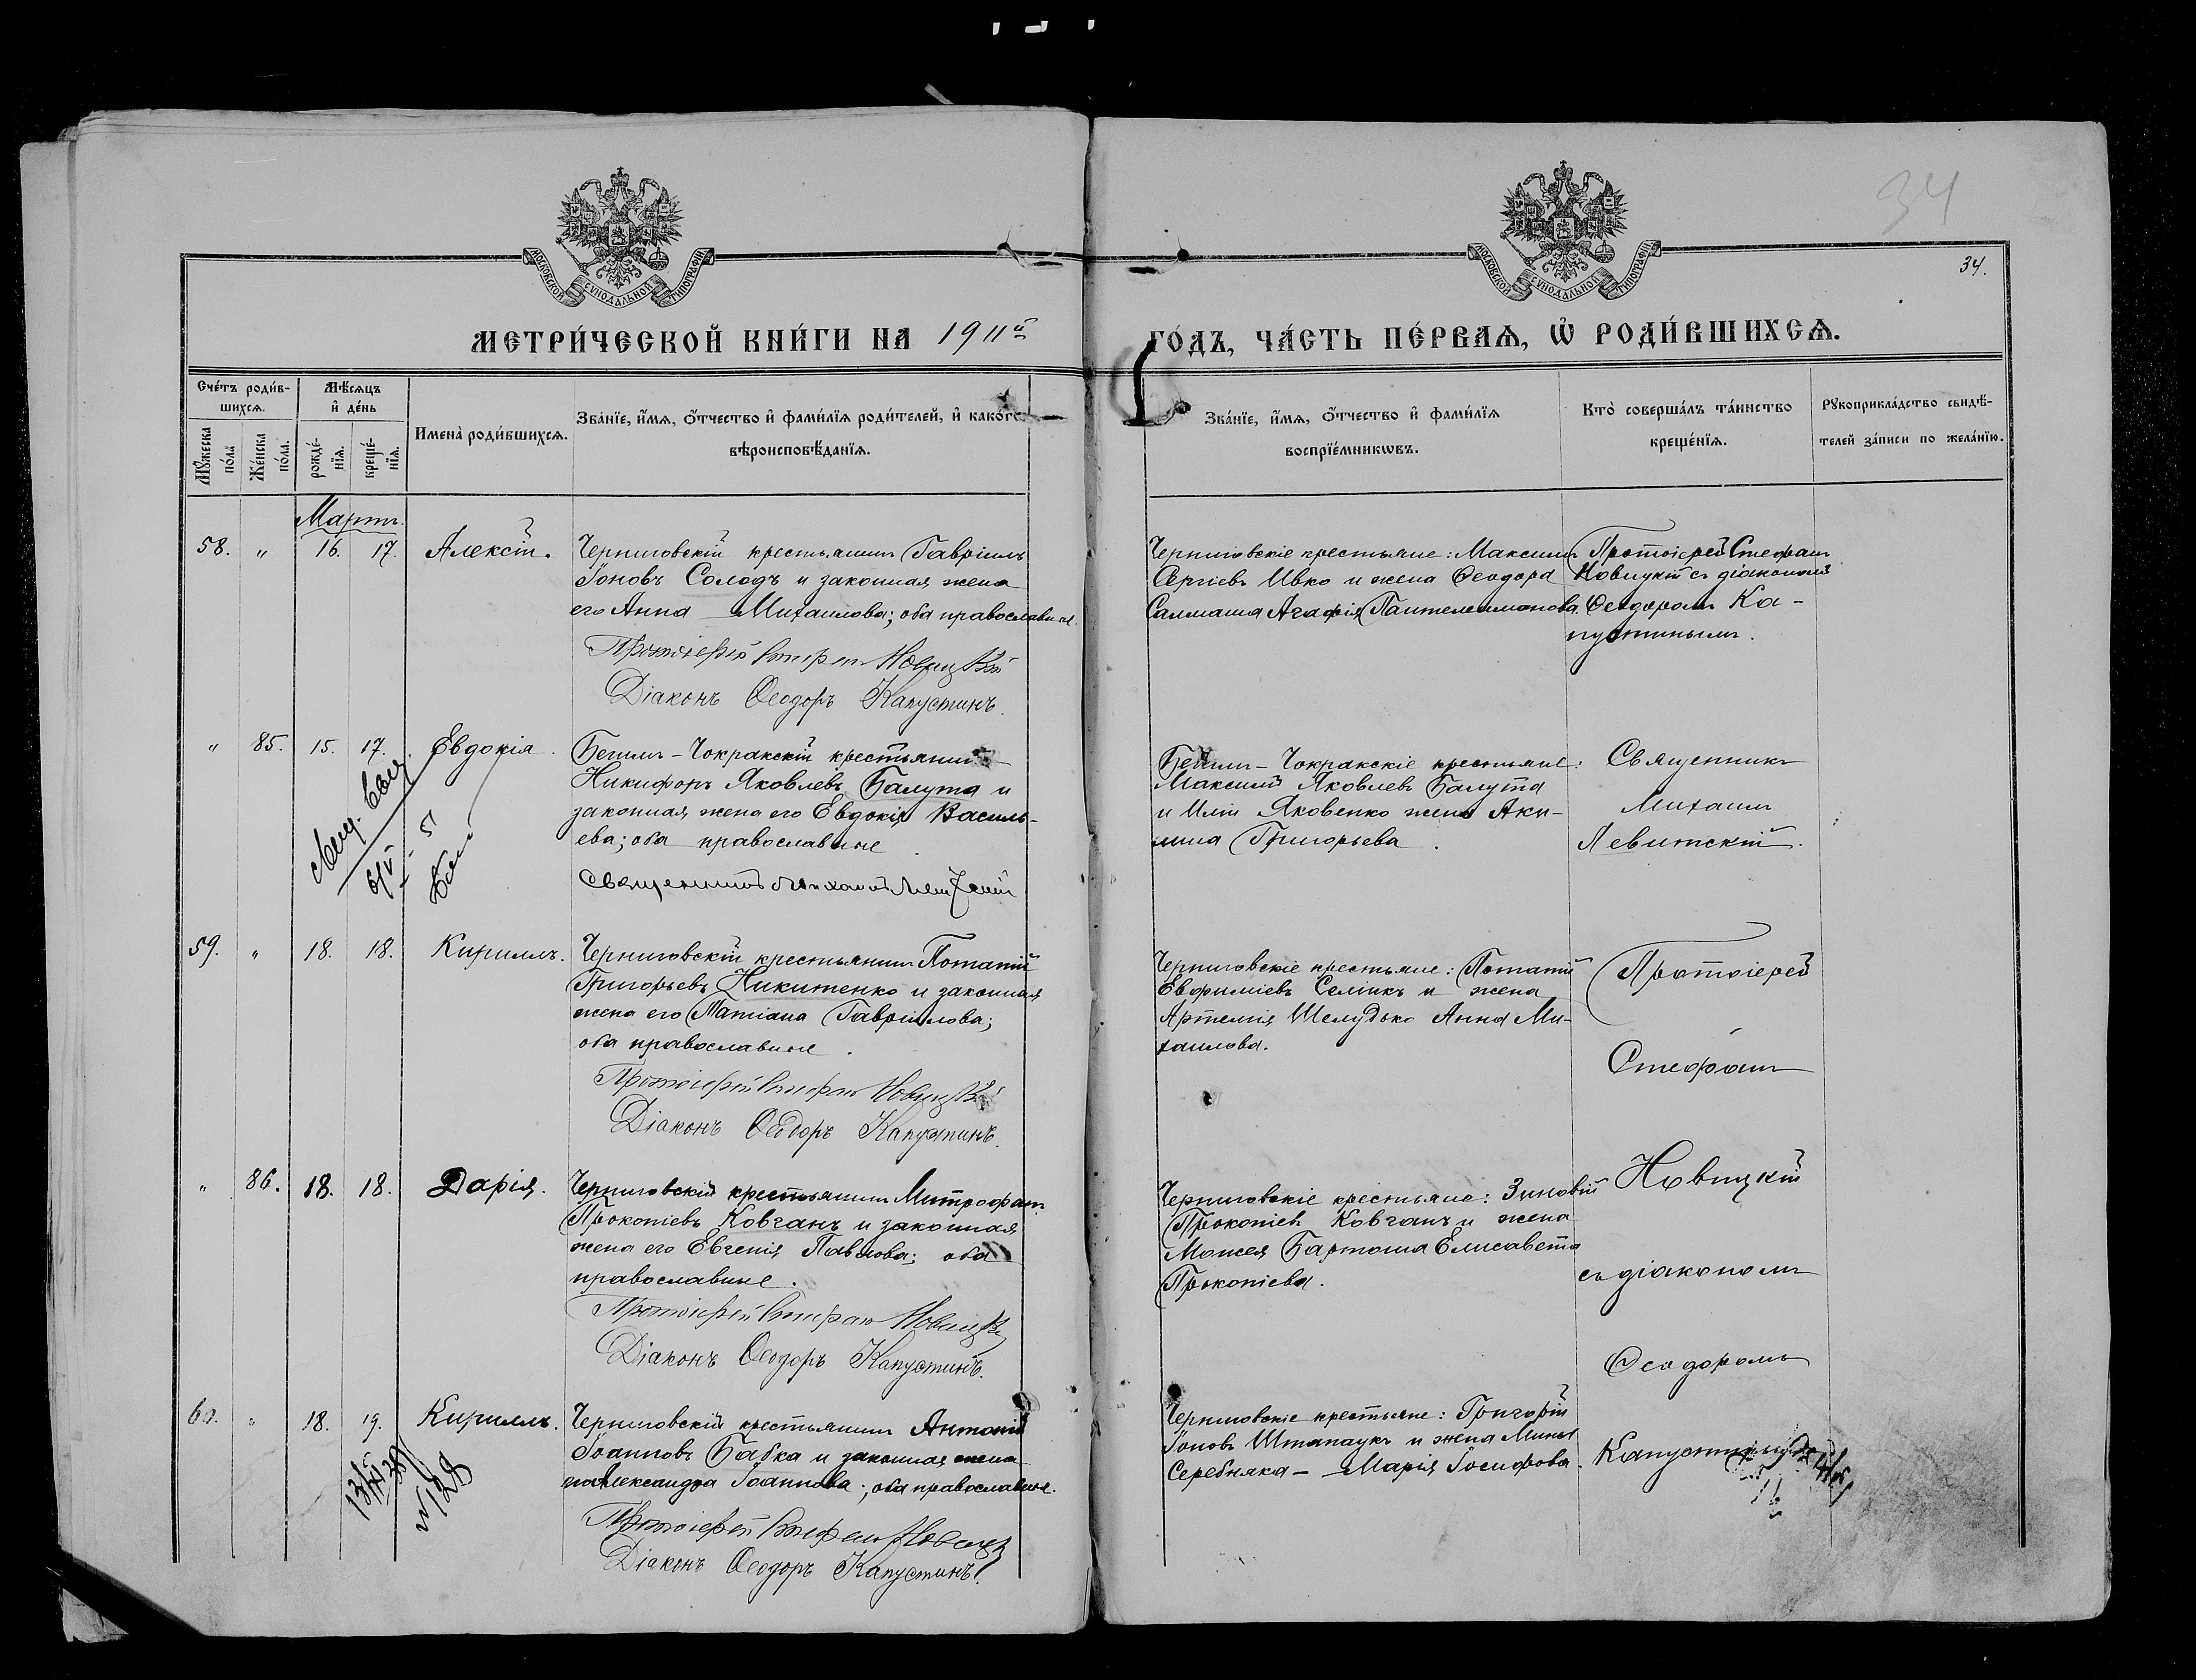 34
34.
МОСКОВСКОЙ СѴНОДАЛЬНОЙ ТИПОГРАФІИ
МОСКОВСКОЙ СѴНОДАЛЬНОЙ ТИПОГРАФІИ
МЕТРИ́ЧЕСКОЙ КНИ́ГИ НА 1911й
ГО́ДЪ, ЧА́СТЬ ПЕ́РВАѦ, Ѿ РОДИ́ВШИХСѦ.
Сче́тъ роди́в-
шихсѧ.
Мѣ́сѧцъ
и҆ де́нь
Мꙋ́жеска
по́ла
Же́нска
по́ла.
рожде́-
нїѧ.
креще́-
нїѧ.
Имена̀ роди́вшихсѧ.
Зва́нїе, и҆́мѧ, ѻ҆́тчество и҆ фами́лїѧ роди́телей, и҆ како́гѡ
вѣроисповѣ́данїѧ.
Зва́нїе, и҆́мѧ, ѻ҆́тчество и҆ фами́лїѧ
воспрїе́мникѡвъ.
Кто̀ соверша́лъ та́инство
креще́нїѧ.
Рꙋкоприкла́дство свидѣ́-
телей за́писи по жела́нїю.
Мартъ.
58. " 16. 17. Алексій.
Черниговскій крестьянинъ Гавріилъ
Іоновъ Солодъ и законная жена
его Анна Михаилова; оба православные.
Протоіерей Стефанъ Новицкій
Діаконъ Ѳеодоръ Капустинъ.
Черниговскіе крестьяне: Максимъ
Сергіевъ Ивко и жена Ѳеодора
Салмаша Агафія Пантелеимонова.
Протоіерей Стефанъ
Новицкій съ діакономъ
Ѳеодоромъ Ка-
пустинымъ.
" 85. 15. 17. Евдокія.
Бегимъ-Чокракскій крестьянинъ
Никифоръ Яковлевъ Балута и
законная жена его Евдокія Василь-
ева; оба православные.
Священникъ Михаилъ Левитскій
Бегимъ-Чокракскіе крестьяне:
Максимъ Яковлевъ Балута
и Иліи Яковенко жена Аки-
лина Григорьева.
Священникъ
Михаилъ
Левитскій.
59. " 18. 18. Кириллъ.
Черниговскій крестьянинъ Потапій
Григорьевъ Никитенко и законная
жена его Татіана Гавріилова;
оба православные.
Протоіерей Стефанъ Новицкій
Діаконъ Ѳеодоръ Капустинъ.
Черниговскіе крестьяне: Потапій
Евфиміевъ Селінкъ и жена
Артемія Шелудько Анна Ми-
хаилова.
Протоіерей
Стефанъ
" 86. 18. 18. Дарія.
Черниговскій крестьянинъ Митрофанъ
Прокопіевъ Ковганъ и законная
жена его Евгенія Павлова; оба
православные.
Протоіерей Стефанъ Новицкій
Діаконъ Ѳеодоръ Капустинъ.
Черниговскіе крестьяне: Зиновій
Прокопіевъ Ковганъ и жена
Моисея Бартоша Елисавета
Прокопіева.
Новицкій
съ діакономъ
Ѳеодоромъ
60. " 18. 19. Кириллъ.
Черниговскій крестьянинъ Антоній
Іоанновъ Бабка и законная жена
его Александра Іоаннова; оба православные.
Протоіерей Стефанъ Новицкій
Діаконъ Ѳеодоръ Капустинъ.
Черниговскіе крестьяне: Григорій
Іоновъ Штапаукъ и жена Мины
Серебняка — Марія Іосифова.
Капустинымъ